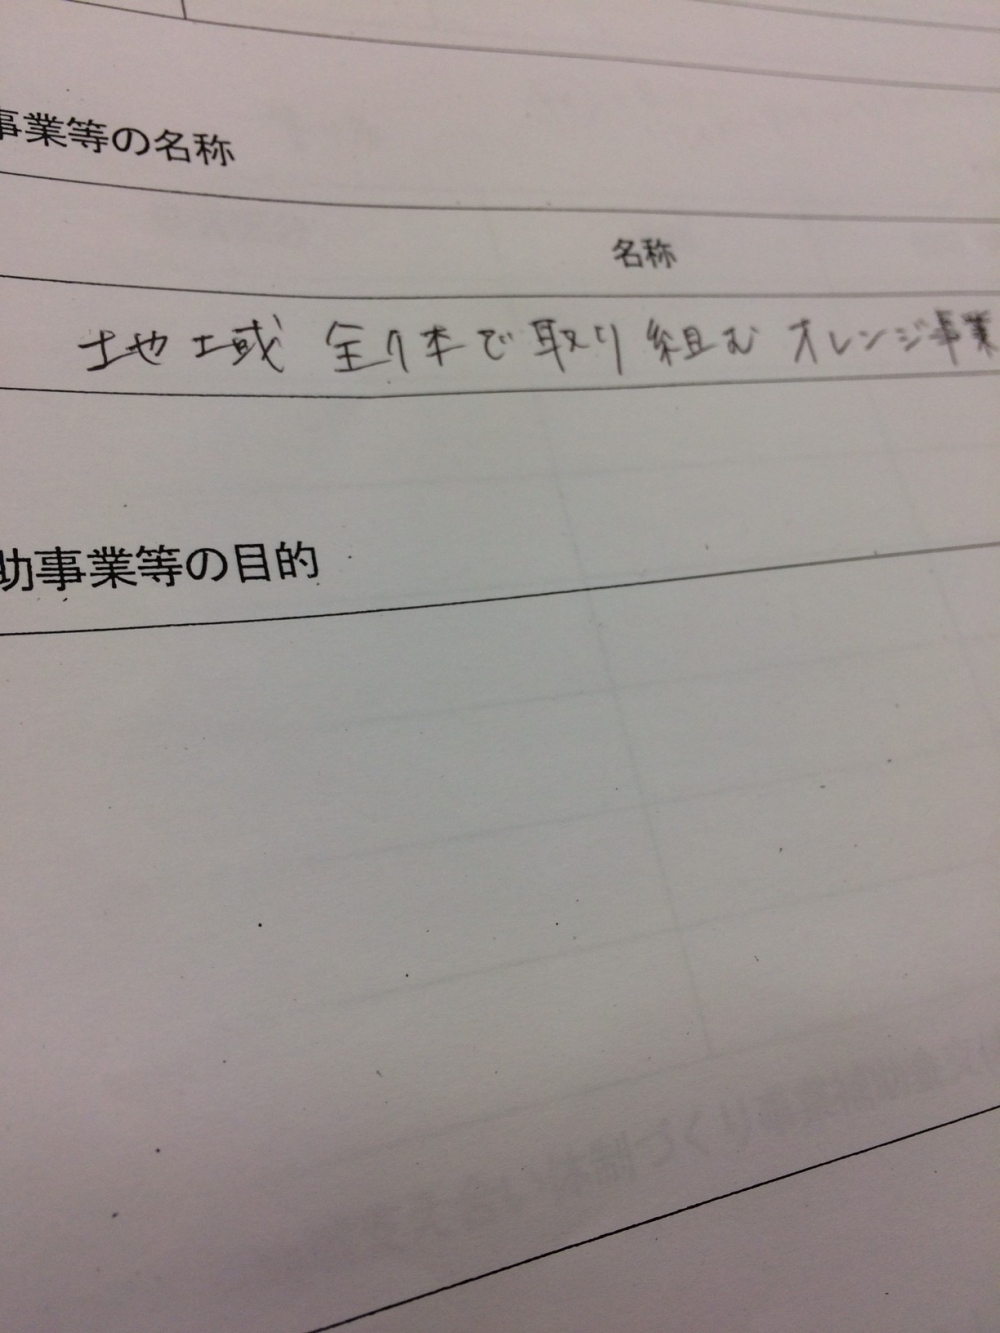 事業等の名称
名称
地域 全体で取り組む オレンジ事業
助事業等の目的